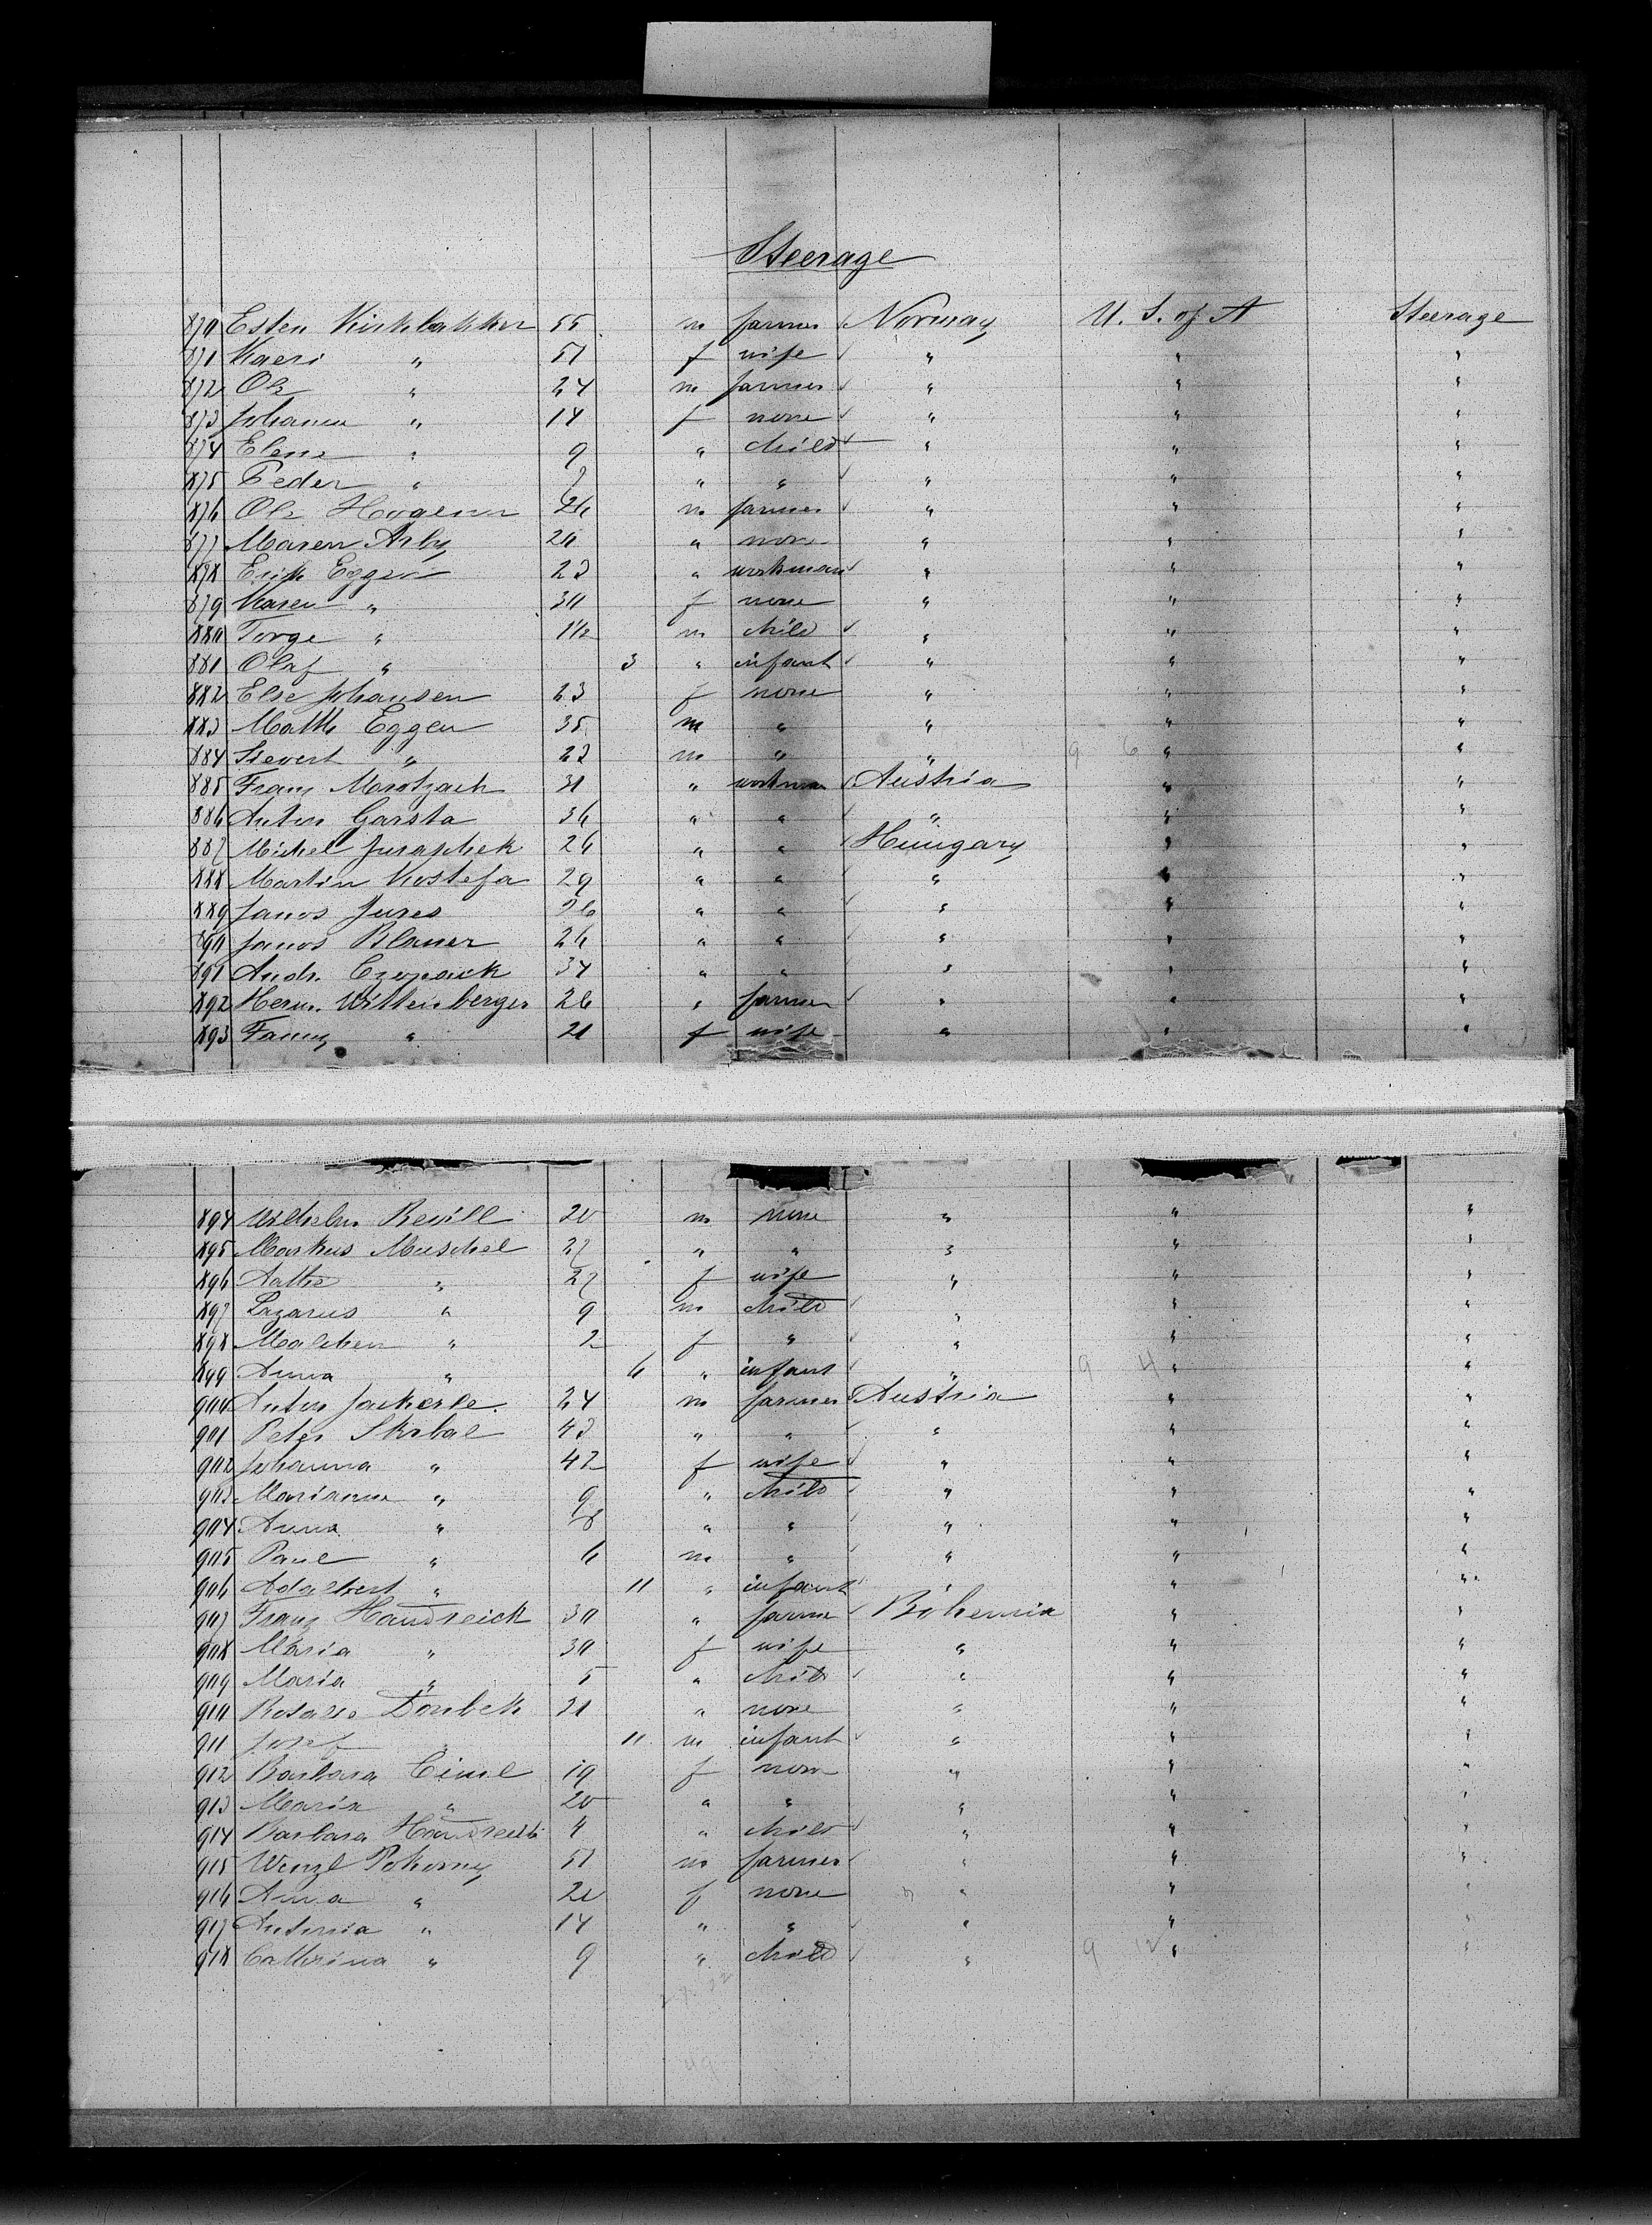 Steerage
870 Esten Kirkbakken 55 m farmer Norway U. S. of A Steerage
871 Kaeri " 51 f wife " " "
872 Ole " 24 m farmer " " "
873 Johanna " 14 f none " " "
874 Elene " 9 " child " " "
875 Peder " 7 " " " " "
876 Ole Haugene 26 m farmer " " "
877 Maren Arby 20 " none " " "
878 Erik Eggen 23 " workman " " "
879 Karen " 30 f none " " "
880 Torge " 1½ m child " " "
881 Olaf " 3 " infant " " "
882 Else Johansen 23 f none " " "
883 Math Eggen 35 m " " " "
884 Sievert " 22 m " " 9 6 " "
885 Franz Marotzach 31 " workman Austria " "
886 Anton Garsta 36 " " " " "
887 Michel Juraphek 26 " " Hungary " "
888 Martin Kostefa 29 " " " " "
889 Janos Jures 26 " " " " "
890 Janos Blaner 26 " " " " "
891 Andr. Czopack 34 " " " " "
892 Herm. Wittenberger 26 " farmer " " "
893 Fanny " 21 f wife " " "
894 Wilhelm Revill 20 m none " " "
895 Markus Muschel 27 " " " " "
896 " 27 f wife " " "
897 Lazarus " 9 m child " " "
898 Malchen " 2 f " " " "
899 Anna " 6 " infant " 9 4 " "
900 Anton Jackerle 24 m farmer Austria " "
901 Peter Skrbal 43 " " " " "
902 Johanna " 42 f wife " " "
903 Marianna " 9 " child " " "
904 Anna " 8 " " " " "
905 Paul " 6 m " " " "
906 Adalbert " 11 " infant " " "
907 Franz Handreick 30 " farmer Bohemia " "
908 Maria " 30 f wife " " "
909 Maria " 5 " child " " "
910 Rosalie Doubek 21 " none " " "
911 Josef " 11 m infant " " "
912 Barbara Cimel 19 f none " " "
913 Maria " 20 " " " " "
914 Barbara Handreick 4 " child " " "
915 Wenzl Pokorny 51 m farmer " " "
916 Anna " 20 f none " " "
917 Antonia " 14 " " " " "
918 Catherina " 9 " child " 9 12 " "